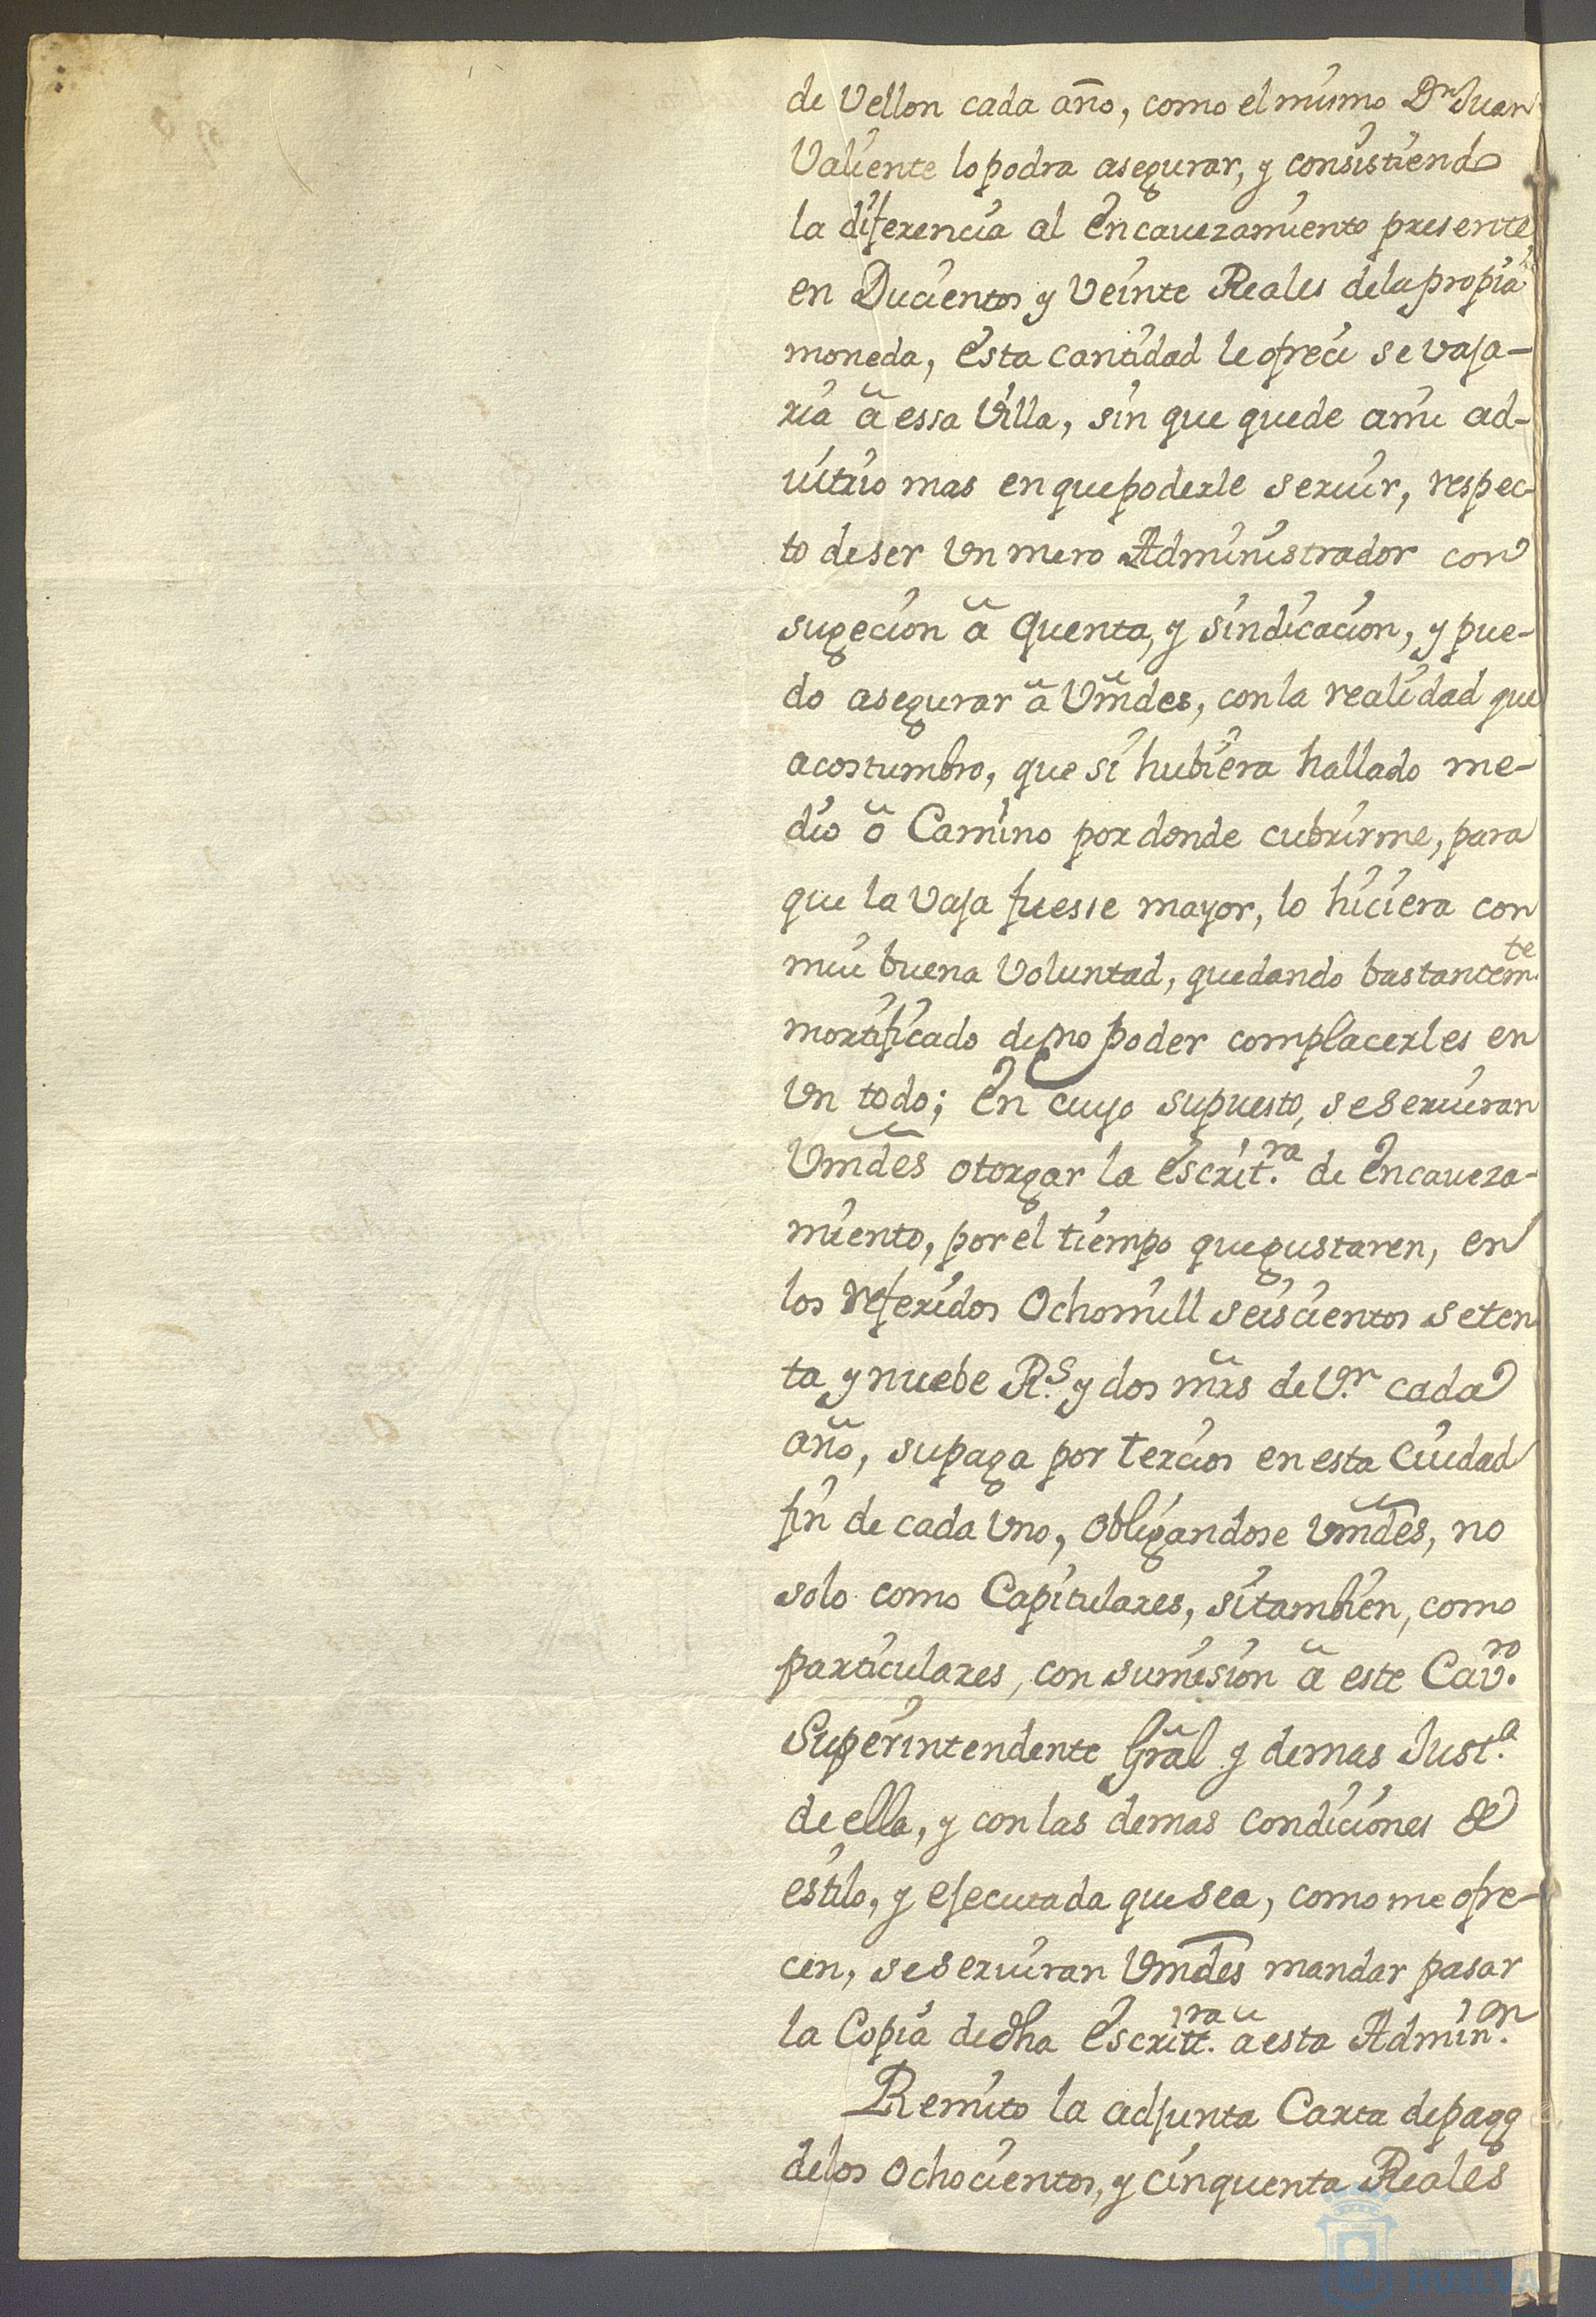 de Vellon cada año, como el mismo Dn. Juan
Valiente lo podra asegurar, y consistiendo
la diferencia al encauezamiento presente,
en Ducientos y Veinte Reales de la propia
moneda, esta cantidad le ofreci se vaja-
ria â essa Villa, sin que quede a mi ad-
uitrio mas en que poderle seruir, respec-
to de ser Un mero Administrador con
sugecion â Quenta, y sindicacion, y pue-
do asegurar â Vmdes, con la realidad que
acostumbro, que si hubiera hallado me-
dio ô Camino por donde cubrirme, para
que la vaja fuesse mayor, lo hiciera con
mui buena Voluntad, quedando bastantemte.
mortificado de no poder complacerles en
Un todo; En cuyo supuesto, se seruiran
Vmdes otorgar la escritra. de Encaueza-
miento, por el tiempo que gustaren, en
los referidos Ochomill seiscientos seten
ta y nuebe Rs. y dos mrs de Vn. cada
año, su paga por tercios en esta Ciudad
fin de cada Uno, obligandose Vmdes, no
solo como Capitulares, si tambien, como
particulares, con sumision â este Cavro.
Superintendente Gral y demas Justa.
de ella, y con las demas condiciones de
estilo, y ejecutada que sea, como me ofre-
cen, se seruiran Vmdes mandar pasar
la Copia de dha Escrittra. â esta Adminon.
Remito la adjunta Carta de pago
de los ochocientos, y cinquenta Reales
Ayuntamiento de
HUELVA